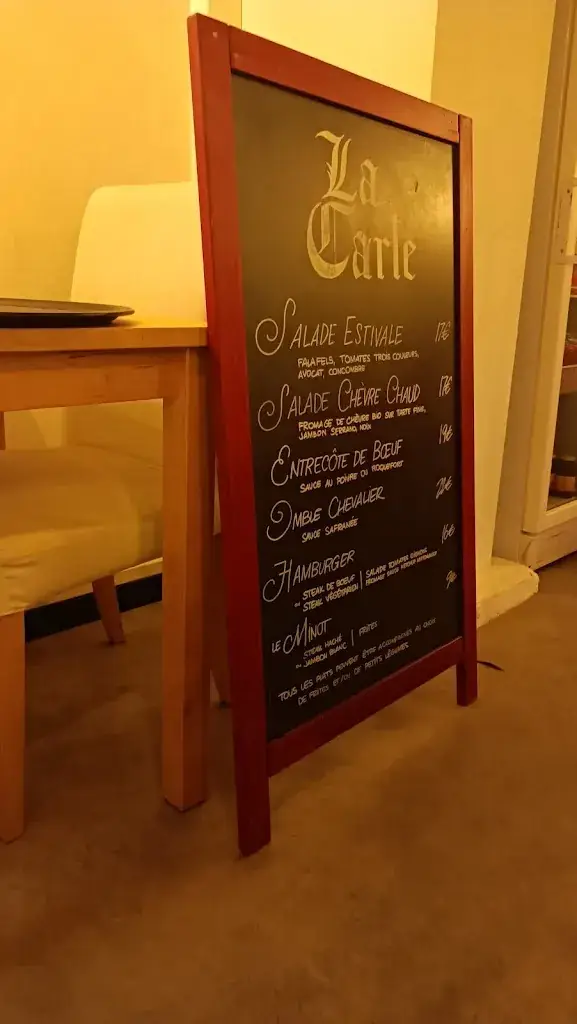 La
Carte
Salade Estivale 17€
Falafels, tomates trois couleurs,
avocat, concombre
Salade Chèvre Chaud 17€
Fromage de chèvre bio sur tarte fine,
jambon serrano, noix
Entrecôte de Bœuf 19€
sauce au poivre ou roquefort
Omble Chevalier 20€
sauce safranée
Hamburger 16€
steak de boeuf | salade tomates oignons
ou steak végétarien | fromage sauce ketchup
le Minot 9€
steak haché | frites
ou jambon blanc
Tous les plats peuvent être accompagnés au choix
de frites et/ou de petits légumes